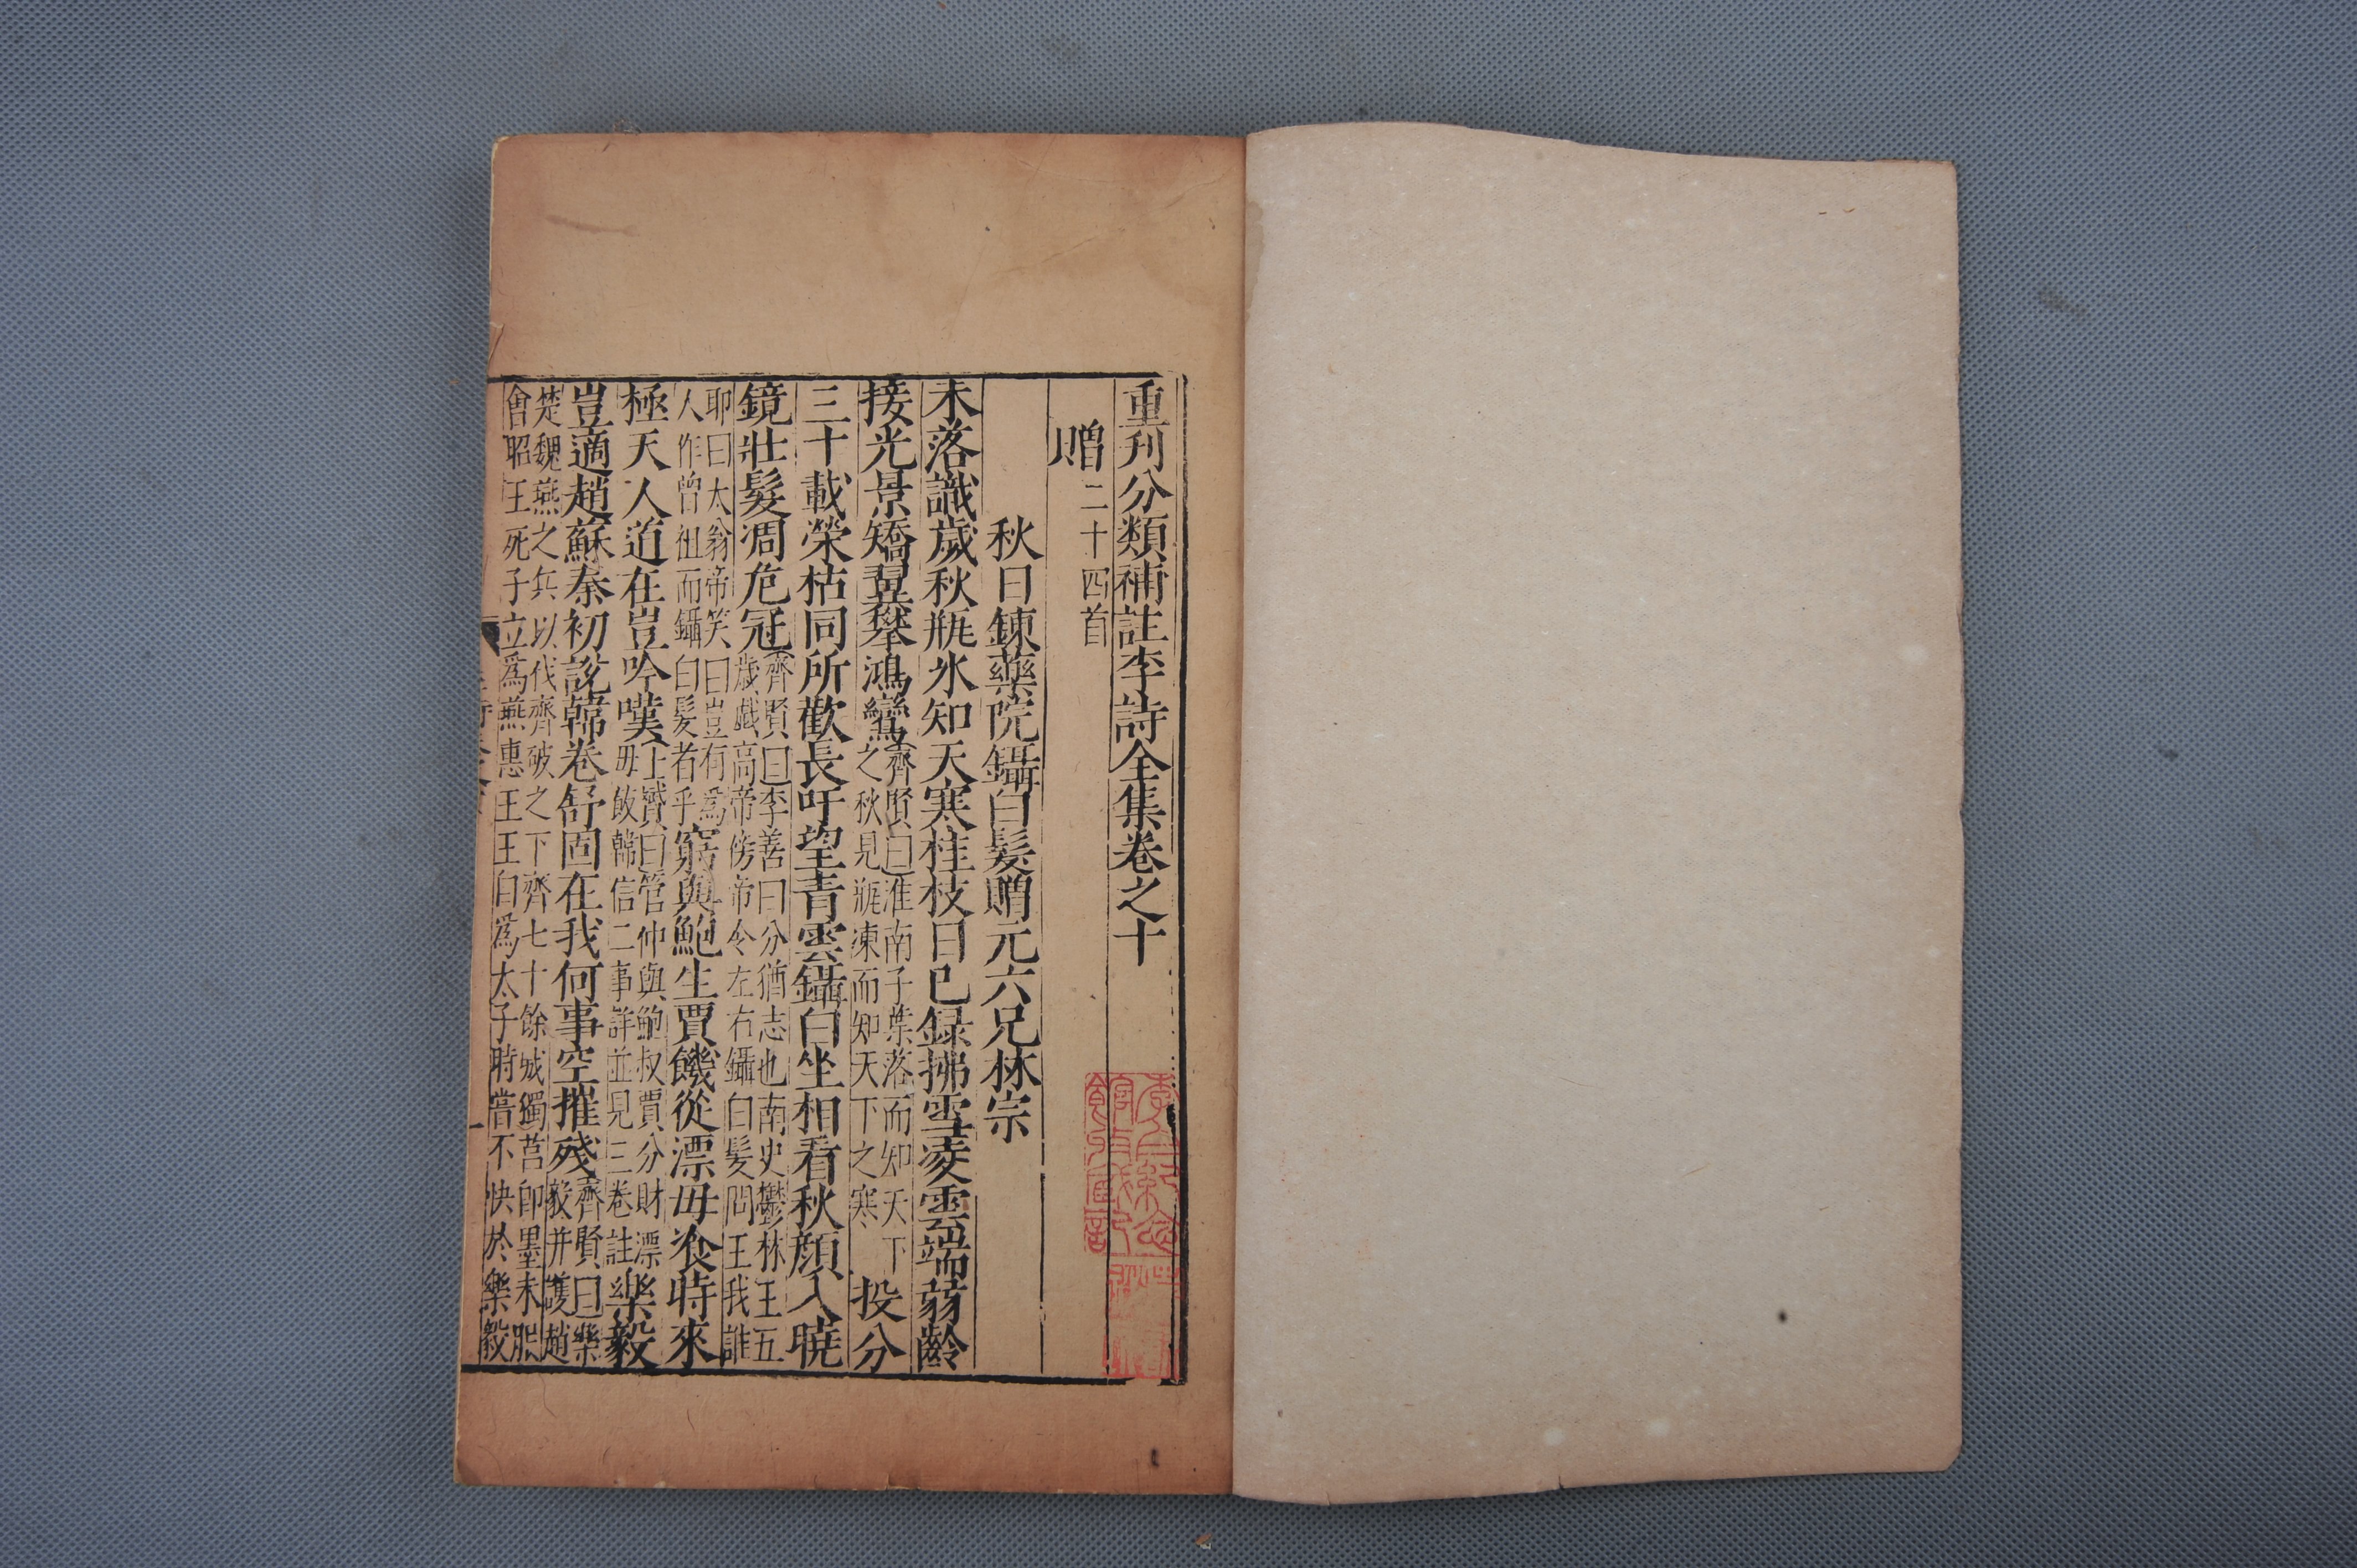 重刊分類補註李詩全集卷之十
贈二十四首
秋日鍊藥院鑷白髮贈元六兄林宗
木落識歲秋瓶氷知天寒桂枝日已錄拂雪凌雲端弱齡
接光景矯翼攀鴻鸞齊賢曰淮南子葉落而知天下之秋見瓶凍而知天下之寒投分
三十載榮枯同所歡長吁望青雲鑷白坐相看秋顏入曉
鏡壯髮凋危冠齊賢曰李善曰分猶志也南史鬱林王五歲戲高帝傍帝令左右鑷白髮問王我誰
耶曰太翁帝笑曰豈有為人作曾祖而鑷白髮者乎窮與鮑生賈饑從漂毋飡時來
極天人道在豈吟嘆上贇曰管仲與鮑叔賈分財漂毋飯韓信二事詳並見三卷註樂毅
豈適趙蘇秦初說韓卷舒固在我何事空摧殘齊賢曰樂毅并護趙
楚魏燕之兵以伐齊破之下齊七十餘城獨莒即墨未服會昭王死子立為燕惠王王自為太子時嘗不快於樂毅